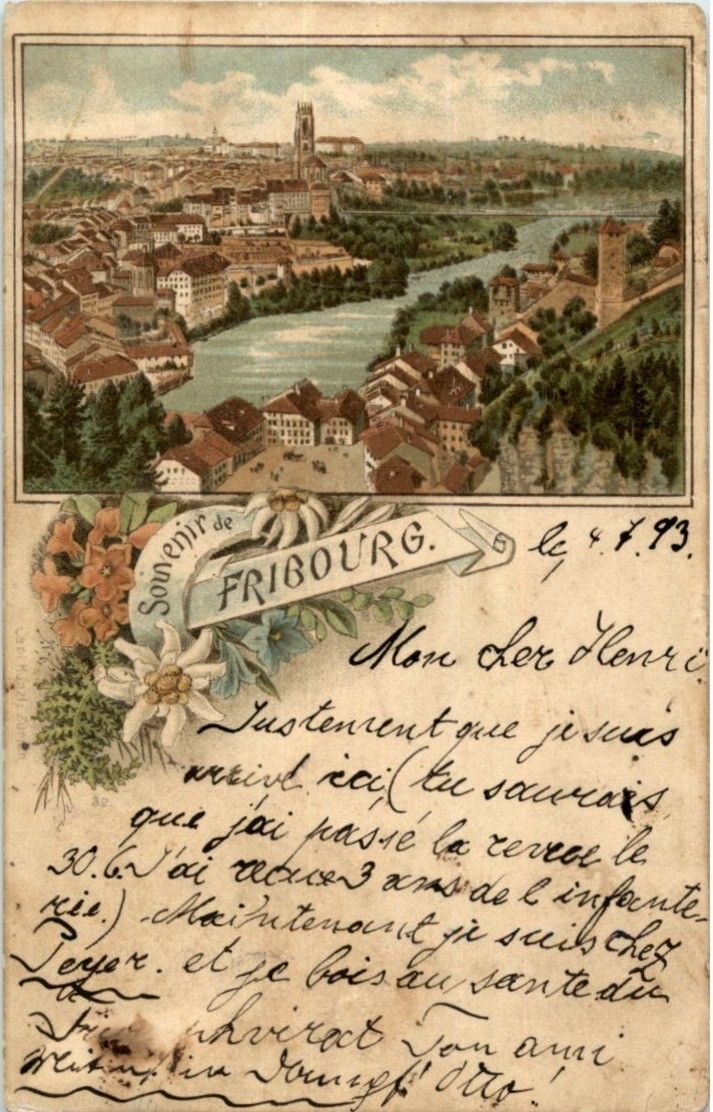 Souvenir de
FRIBOURG.
le, 4.7.93.
Mon cher Henri.
Justement que je suis
arrivé ici, (tu saurais
que j'ai passé la revue le
30.6. J'ai reçue 3 ans de l'infante-
rie.) Maintenant je suis chez
Peyer. et je bois au sante du
Ton ami
Otto!
32